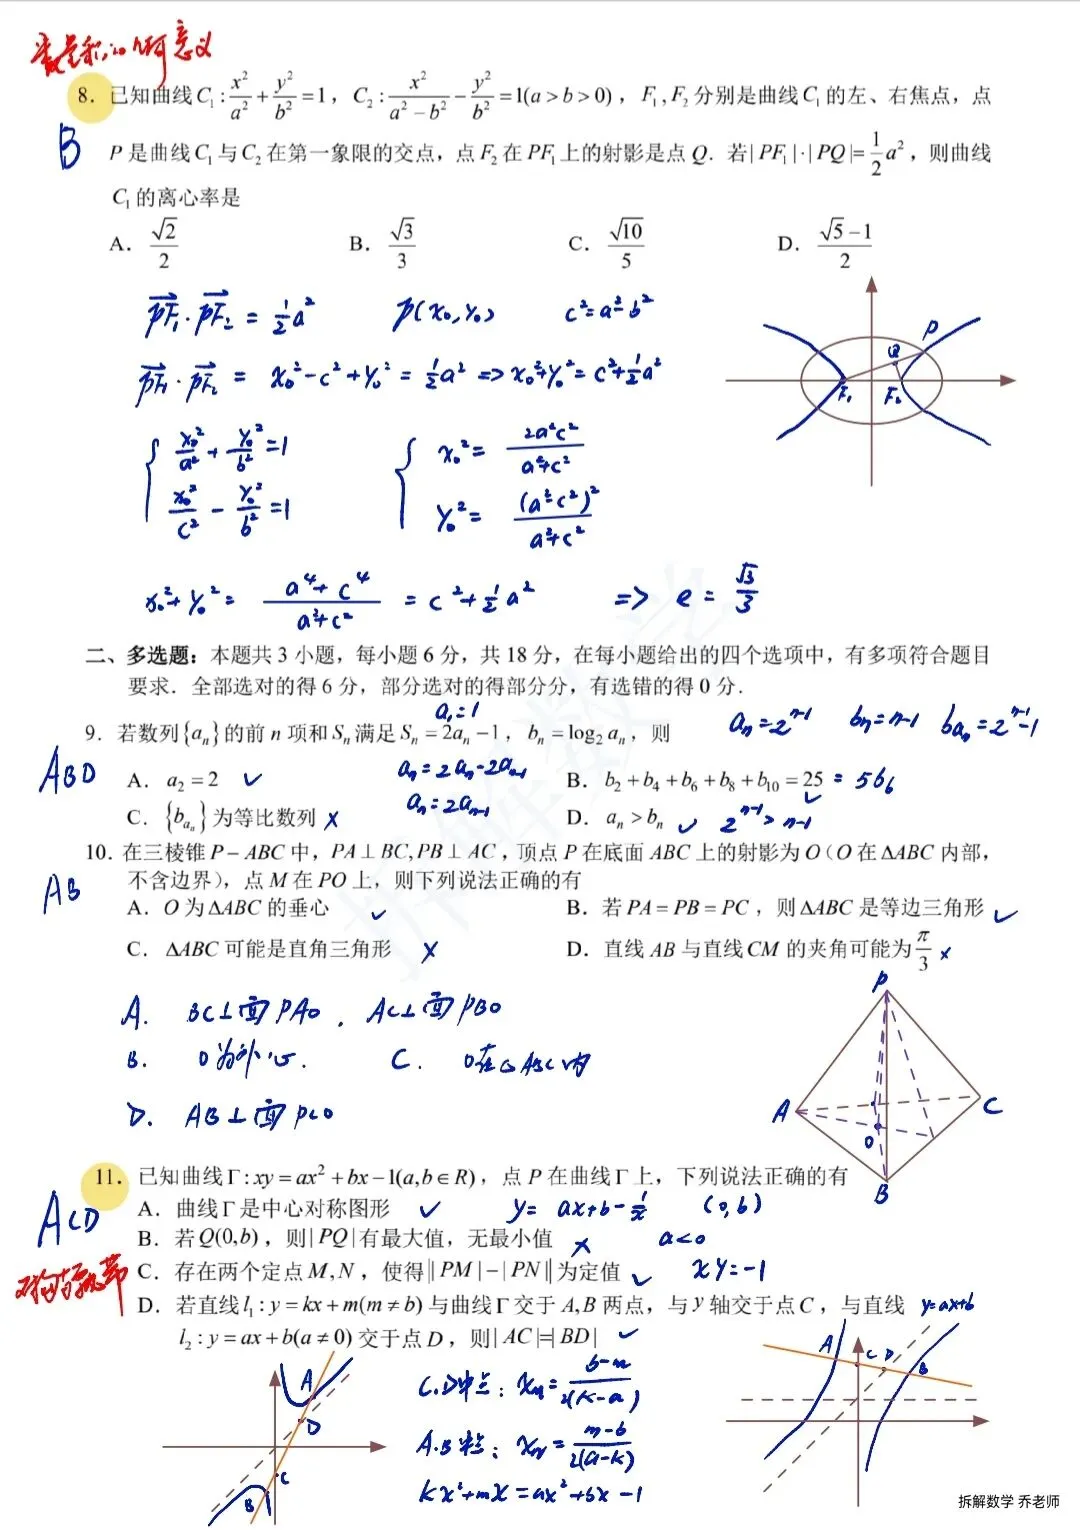 数量积的几何意义
8. 已知曲线 C₁ : x²/a² + y²/b² = 1，C₂ : x²/(a²−b²) − y²/b² = 1(a > b > 0)，F₁, F₂ 分别是曲线 C₁ 的左、右焦点，点
B
P 是曲线 C₁ 与 C₂ 在第一象限的交点，点 F₂ 在 PF₁ 上的射影是点 Q．若 | PF₁ | · | PQ |= 1/2 a²，则曲线
C₁ 的离心率是
A． √2/2 B． √3/3 C． √10/5 D． (√5−1)/2
PF₁·PF₂ = 1/2 a² P(x₀, y₀) c²=a²−b²
PF₁·PF₂ = x₀²−c²+y₀² = 1/2 a² => x₀²+y₀² = c²+1/2 a²
x₀²/a² + y₀²/b² = 1 x₀² = 2a²c²/(a²+c²)
x₀²/c² − y₀²/b² = 1 y₀² = (a²−c²)²/(a²+c²)
x₀²+y₀² = (a⁴+c⁴)/(a²+c²) = c²+1/2 a² => e = √3/3
P
Q
F₁ F₂
二、多选题：本题共 3 小题，每小题 6 分，共 18 分，在每小题给出的四个选项中，有多项符合题目
要求．全部选对的得 6 分，部分选对的得部分分，有选错的得 0 分．
a₁=1
9．若数列{aₙ}的前 n 项和 Sₙ 满足 Sₙ = 2aₙ −1，bₙ = log₂ aₙ，则 aₙ=2ⁿ⁻¹ bₙ=n−1 b_aₙ=2ⁿ⁻¹−1
ABD
A． a₂ = 2 ✓ aₙ=2aₙ−2aₙ₋₁ B． b₂ + b₄ + b₆ + b₈ + b₁₀ = 25 = 5b₆ ✓
C． {b_aₙ}为等比数列 × aₙ=2aₙ₋₁ D． aₙ > bₙ ✓ 2ⁿ⁻¹>n−1
10．在三棱锥 P − ABC 中，PA ⊥ BC, PB ⊥ AC，顶点 P 在底面 ABC 上的射影为 O（O 在 △ABC 内部，
AB
不含边界），点 M 在 PO 上，则下列说法正确的有
A．O 为 △ABC 的垂心 ✓ B．若 PA = PB = PC，则 △ABC 是等边三角形 ✓
C． △ABC 可能是直角三角形 × D．直线 AB 与直线 CM 的夹角可能为 π/3 ×
A. BC⊥面PAO . AC⊥面PBO
B. O为外心. C. O在△ABC内
D. AB⊥面PCO
P
A C
O
B
11．已知曲线 Γ : xy = ax² + bx −1(a, b ∈ R)，点 P 在曲线 Γ 上，下列说法正确的有
A．曲线 Γ 是中心对称图形 ✓ y= ax+b−1/x (0,b)
ACD
B．若 Q(0,b)，则| PQ |有最大值，无最小值 × a<0
C．存在两个定点 M, N，使得 || PM | − | PN || 为定值 ✓ xy=−1
D．若直线 l₁ : y = kx + m(m ≠ b) 与曲线 Γ 交于 A, B 两点，与 y 轴交于点 C，与直线 y=ax+b
l₂ : y = ax + b(a ≠ 0) 交于点 D，则| AC |=| BD | ✓
C.D中点：x_M = (b−m)/(2(k−a))
A.B中点：x_N = (m−b)/(2(a−k))
kx²+mx=ax²+bx−1
A
D
C
B
A C D B
拆解数学 乔老师
拆解数学